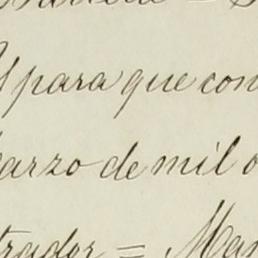 Y para que con
arzo de mil o
trador = Man